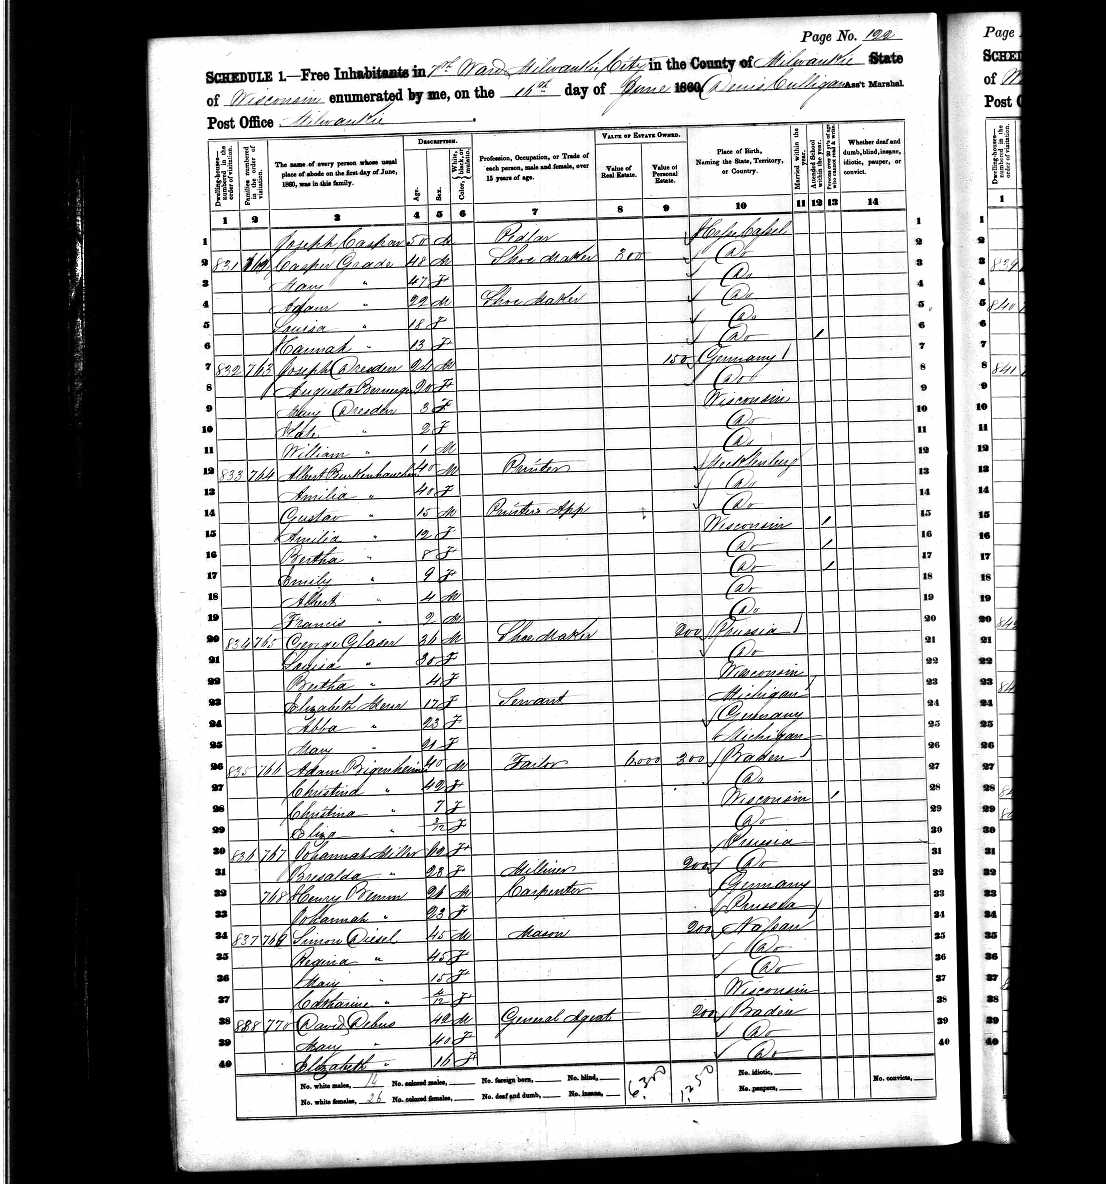 Page No. 122
SCHEDULE 1.—Free Inhabitants in 7th Ward Milwaukie City in the County of Milwaukie State
of Wisconsin enumerated by me, on the 16th day of June 1860. Denis Culligan Ass't Marshal.
Post Office Milwaukie
Dwelling-houses—numbered in the order of visitation.
Families numbered in the order of visitation.
The name of every person whose usual place of abode on the first day of June, 1860, was in this family.
DESCRIPTION.
Age.
Sex.
Color, White, black, or mulatto.
Profession, Occupation, or Trade of each person, male and female, over 15 years of age.
VALUE OF ESTATE OWNED.
Value of Real Estate.
Value of Personal Estate.
Place of Birth, Naming the State, Territory, or Country.
Married within the year.
Attended School within the year.
Persons over 20 y'rs of age who cannot read & write.
Whether deaf and dumb, blind, insane, idiotic, pauper, or convict.
1 2 3 4 5 6 7 8 9 10 11 12 13 14
1 Joseph Caspar 50 M Pedlar 1
2 831 762 Casper Grade 48 M Shoe Maker 300 Do 2
3 Mary " 47 F Do 3
4 Adam " 22 M Shoe Maker Do 4
5 Louisa " 18 F Do 5
6 Hannah " 13 F Do 1 6
7 832 763 Joseph Dresden 24 M 150 Germany / 7
8 Augusta 20 F Do 8
9 Mary Dresden 3 F Wisconsin 9
10 Kate " 2 F Do 10
11 William " 1 M Do 11
12 833 764 Albert 40 M Printer Mecklenburg 12
13 Amilia " 40 F Do 13
14 Gustav " 15 M Printers App Do 14
15 Amilia " 12 F Wisconsin 1 15
16 Bertha " 8 F Do 1 16
17 Emily " 9 F Do 1 17
18 Albert " 4 M Do 18
19 Francis " 2 M Do 19
20 834 765 George Glaser 36 M Shoe Maker 200 Prussia / 20
21 Louisa " 30 F Do 21
22 Bertha " 4 F Wisconsin 22
23 Elizabeth 17 F Servant Michigan / 23
24 Abba " 23 F Germany 24
25 Mary " 21 F Michigan 25
26 835 766 Adam Bigenheimer 40 M Tailor 6000 300 Baden / 26
27 Christina " 42 F Do 27
28 Christina " 7 F Wisconsin 1 28
29 Eliza " 3/12 F Do 29
30 836 767 Johannah Miller 62 F Prussia 30
31 " 23 F Milliner 200 Do 31
32 768 Henry 26 M Carpenter Germany 32
33 Johannah " 23 F Prussia / 33
34 837 769 Simon Diesel 45 M Mason 200 Nassau 34
35 Regina " 45 F Do 35
36 Mary " 15 F Do 36
37 Catharine " F Wisconsin 37
38 838 770 David Debus 42 M General Agent 200 Baden 38
39 Mary " 40 F Do 39
40 Elizabeth " 16 F Do 40
No. white males, 14 No. colored males, No. foreign born, No. blind, 6300 1250 No. idiotic, No. convicts,
No. white females, 26 No. colored females, No. deaf and dumb, No. insane, No. paupers,
Page
SCHED
of W
Post O
1
839
840
841